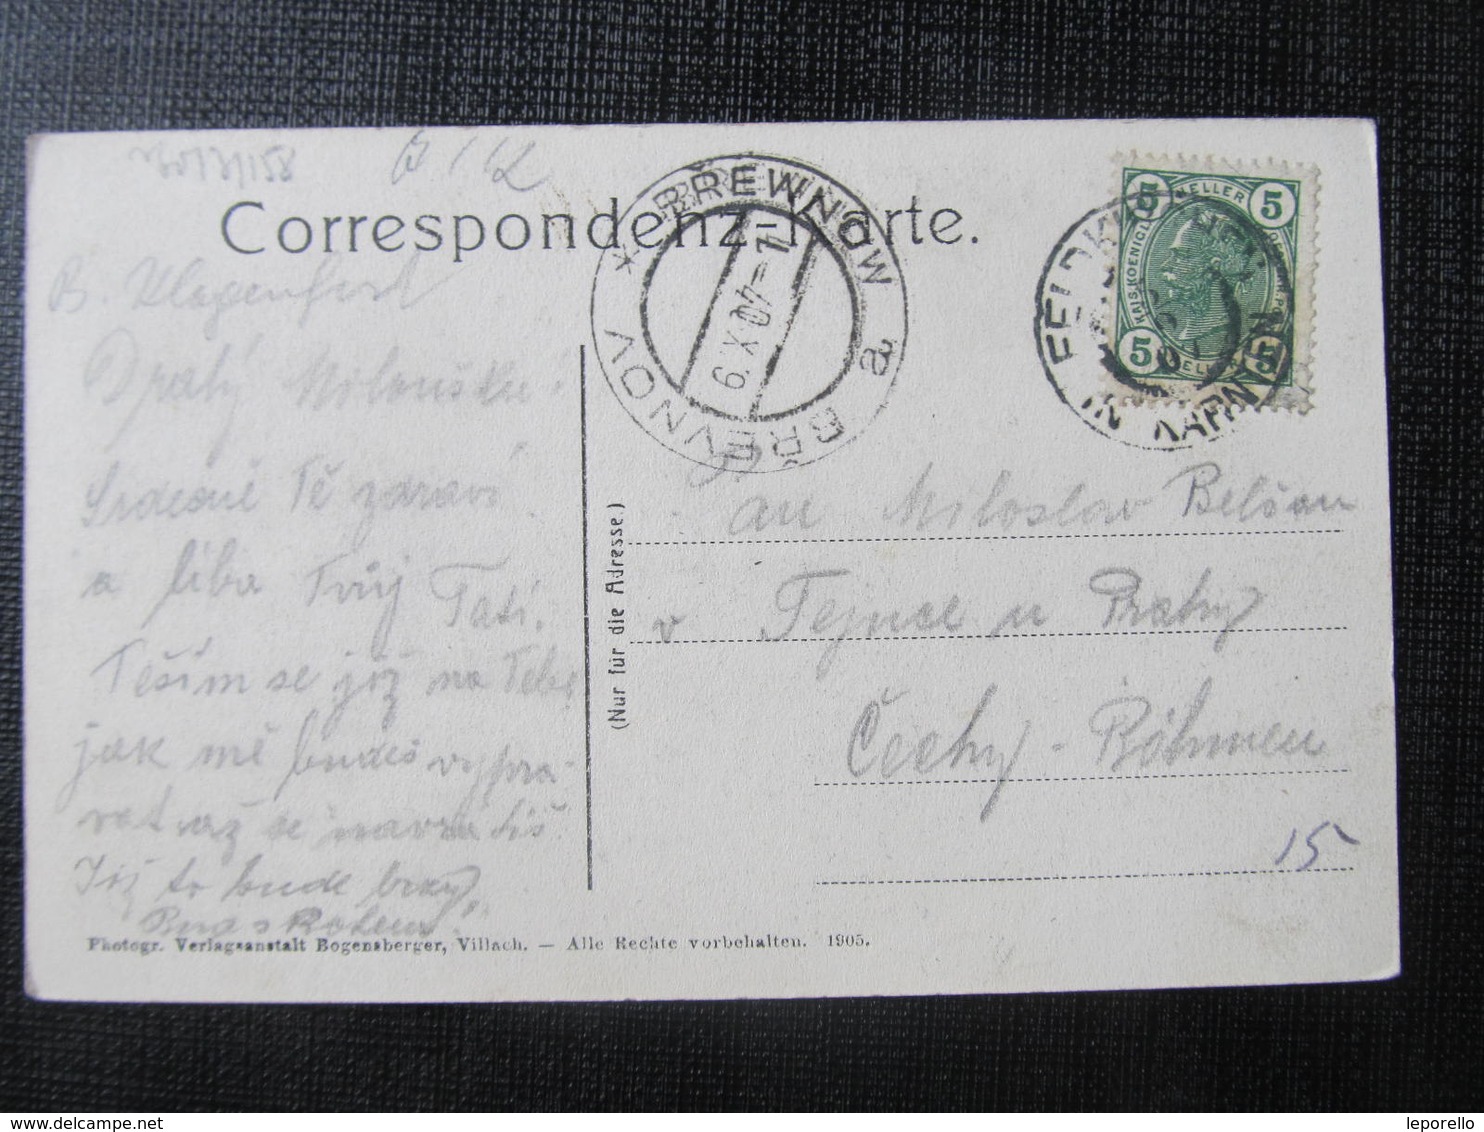 Correspondenz-Karte.
BREWNOW a BŘEVNOV
6.X.07-1
FELDKIRCHEN IN KÄRNTEN
5 HELLER 5
KAIS. KOENIGL.
5 HELLER 5
Klagenfurt
Drahý Miloušku!
Srdečně Tě zdraví
a líbá Tvůj Tatí.
Těším se již na Tebe
jak mě budeš vypra-
vovat až se navrátíš
Již to bude brzy,
an Miloslav Belšan
v Tejnce u Prahy
Čechy - Böhmen
15
(Nur für die Adresse.)
Photogr. Verlagsanstalt Bogensberger, Villach. — Alle Rechte vorbehalten. 1905.
leporello